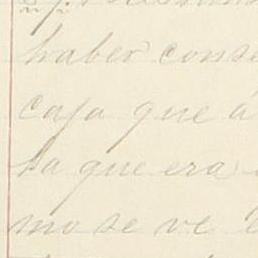 haber conse
caja que á
sa que era
mo se ve